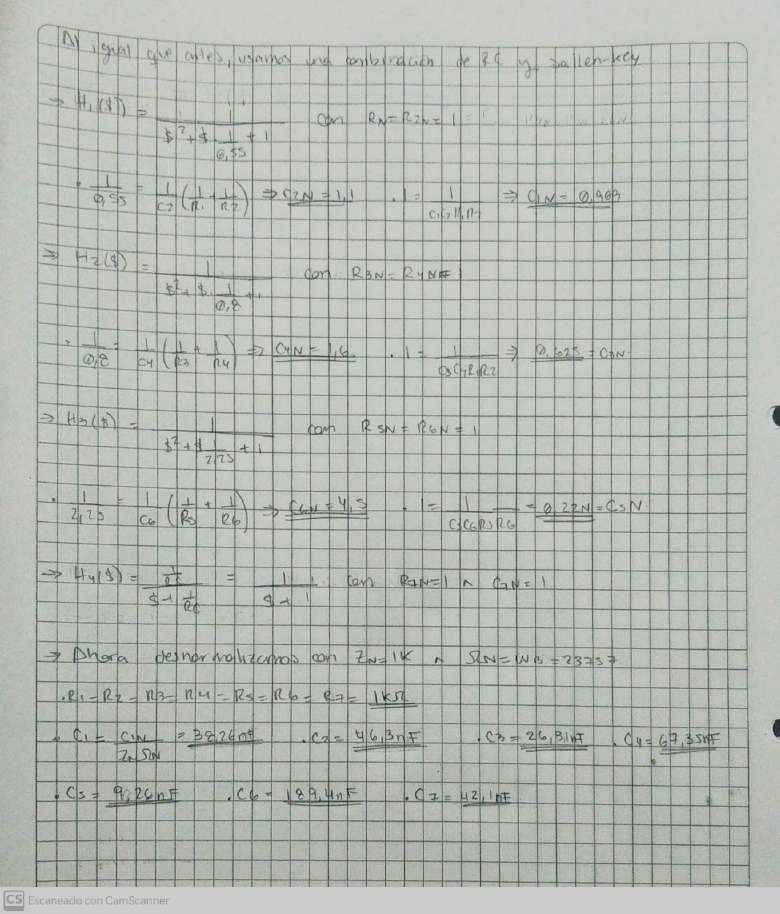 Al igual que antes, usamos una combinación de RC y sallen-key
→ H₁($) = 1 / ($² + $ · 1/0,55 + 1) con RN = R2N = 1
· 1/0,55 = 1/C2 (1/R1 + 1/R2) ⇒ C2N = 1,1 · 1 = 1/(C1C2R1R2) ⇒ C1N = 0,909
⇒ H2($) = 1 / ($² + $ · 1/0,8 + 1) con R3N = R4N = 1
· 1/0,8 = 1/C4 (1/R3 + 1/R4) ⇒ C4N = 1,6 · 1 = 1/(C3C4R1R2) ⇒ 0,625 = C3N
→ H3($) = 1 / ($² + $ 1/2,25 + 1) con R5N = R6N = 1
· 1/2,25 = 1/C6 (1/R5 + 1/R6) ⇒ C6N = 4,5 · 1 = 1/(C5C6R5R6) = 0,22N = C5N
→ H4($) = = 1 / ($ + 1) con R7N = 1 ∧ C7N = 1
→ Ahora desnormalizamos con ZN = 1K ∧ ΩN = WB = 23757
· R1 = R2 = R3 = R4 = R5 = R6 = R7 = 1KΩ
· C1 = C1N / ZN ΩN = 38,26nF · C2 = 46,3nF · C3 = 26,31nF · C4 = 67,35nF
· C5 = 9,26nF · C6 = 189,4nF · C7 = 42,1nF
CS Escaneado con CamScanner